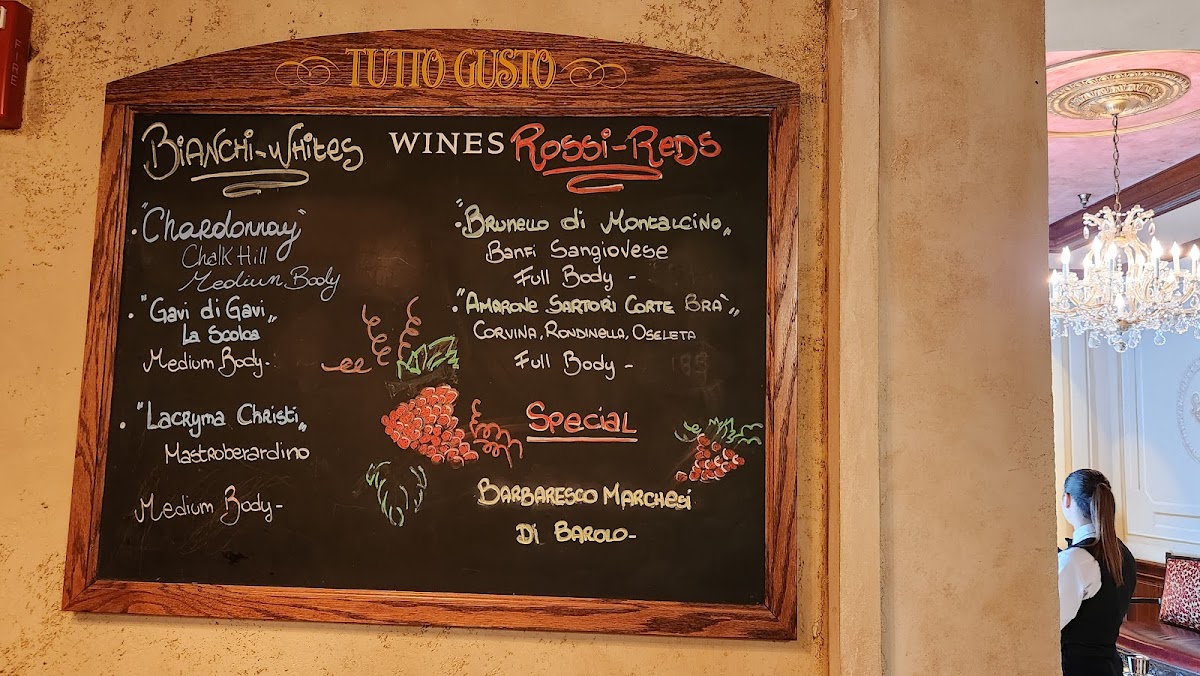 TUTTO GUSTO
WINES
Bianchi-Whites
• "Chardonnay"
Chalk Hill
Medium Body
• "Gavi di Gavi„
La Scolca
Medium Body-
• "Lacryma Christi„
Mastroberardino
Medium Body-
Rossi-Reds
• "Brunello di Montalcino„
Banfi Sangiovese
Full Body -
• "Amarone Sartori Corte Brà„
Corvina, Rondinella, Oseleta
Full Body -
Special
Barbaresco Marchesi
Di Barolo-
FIRE